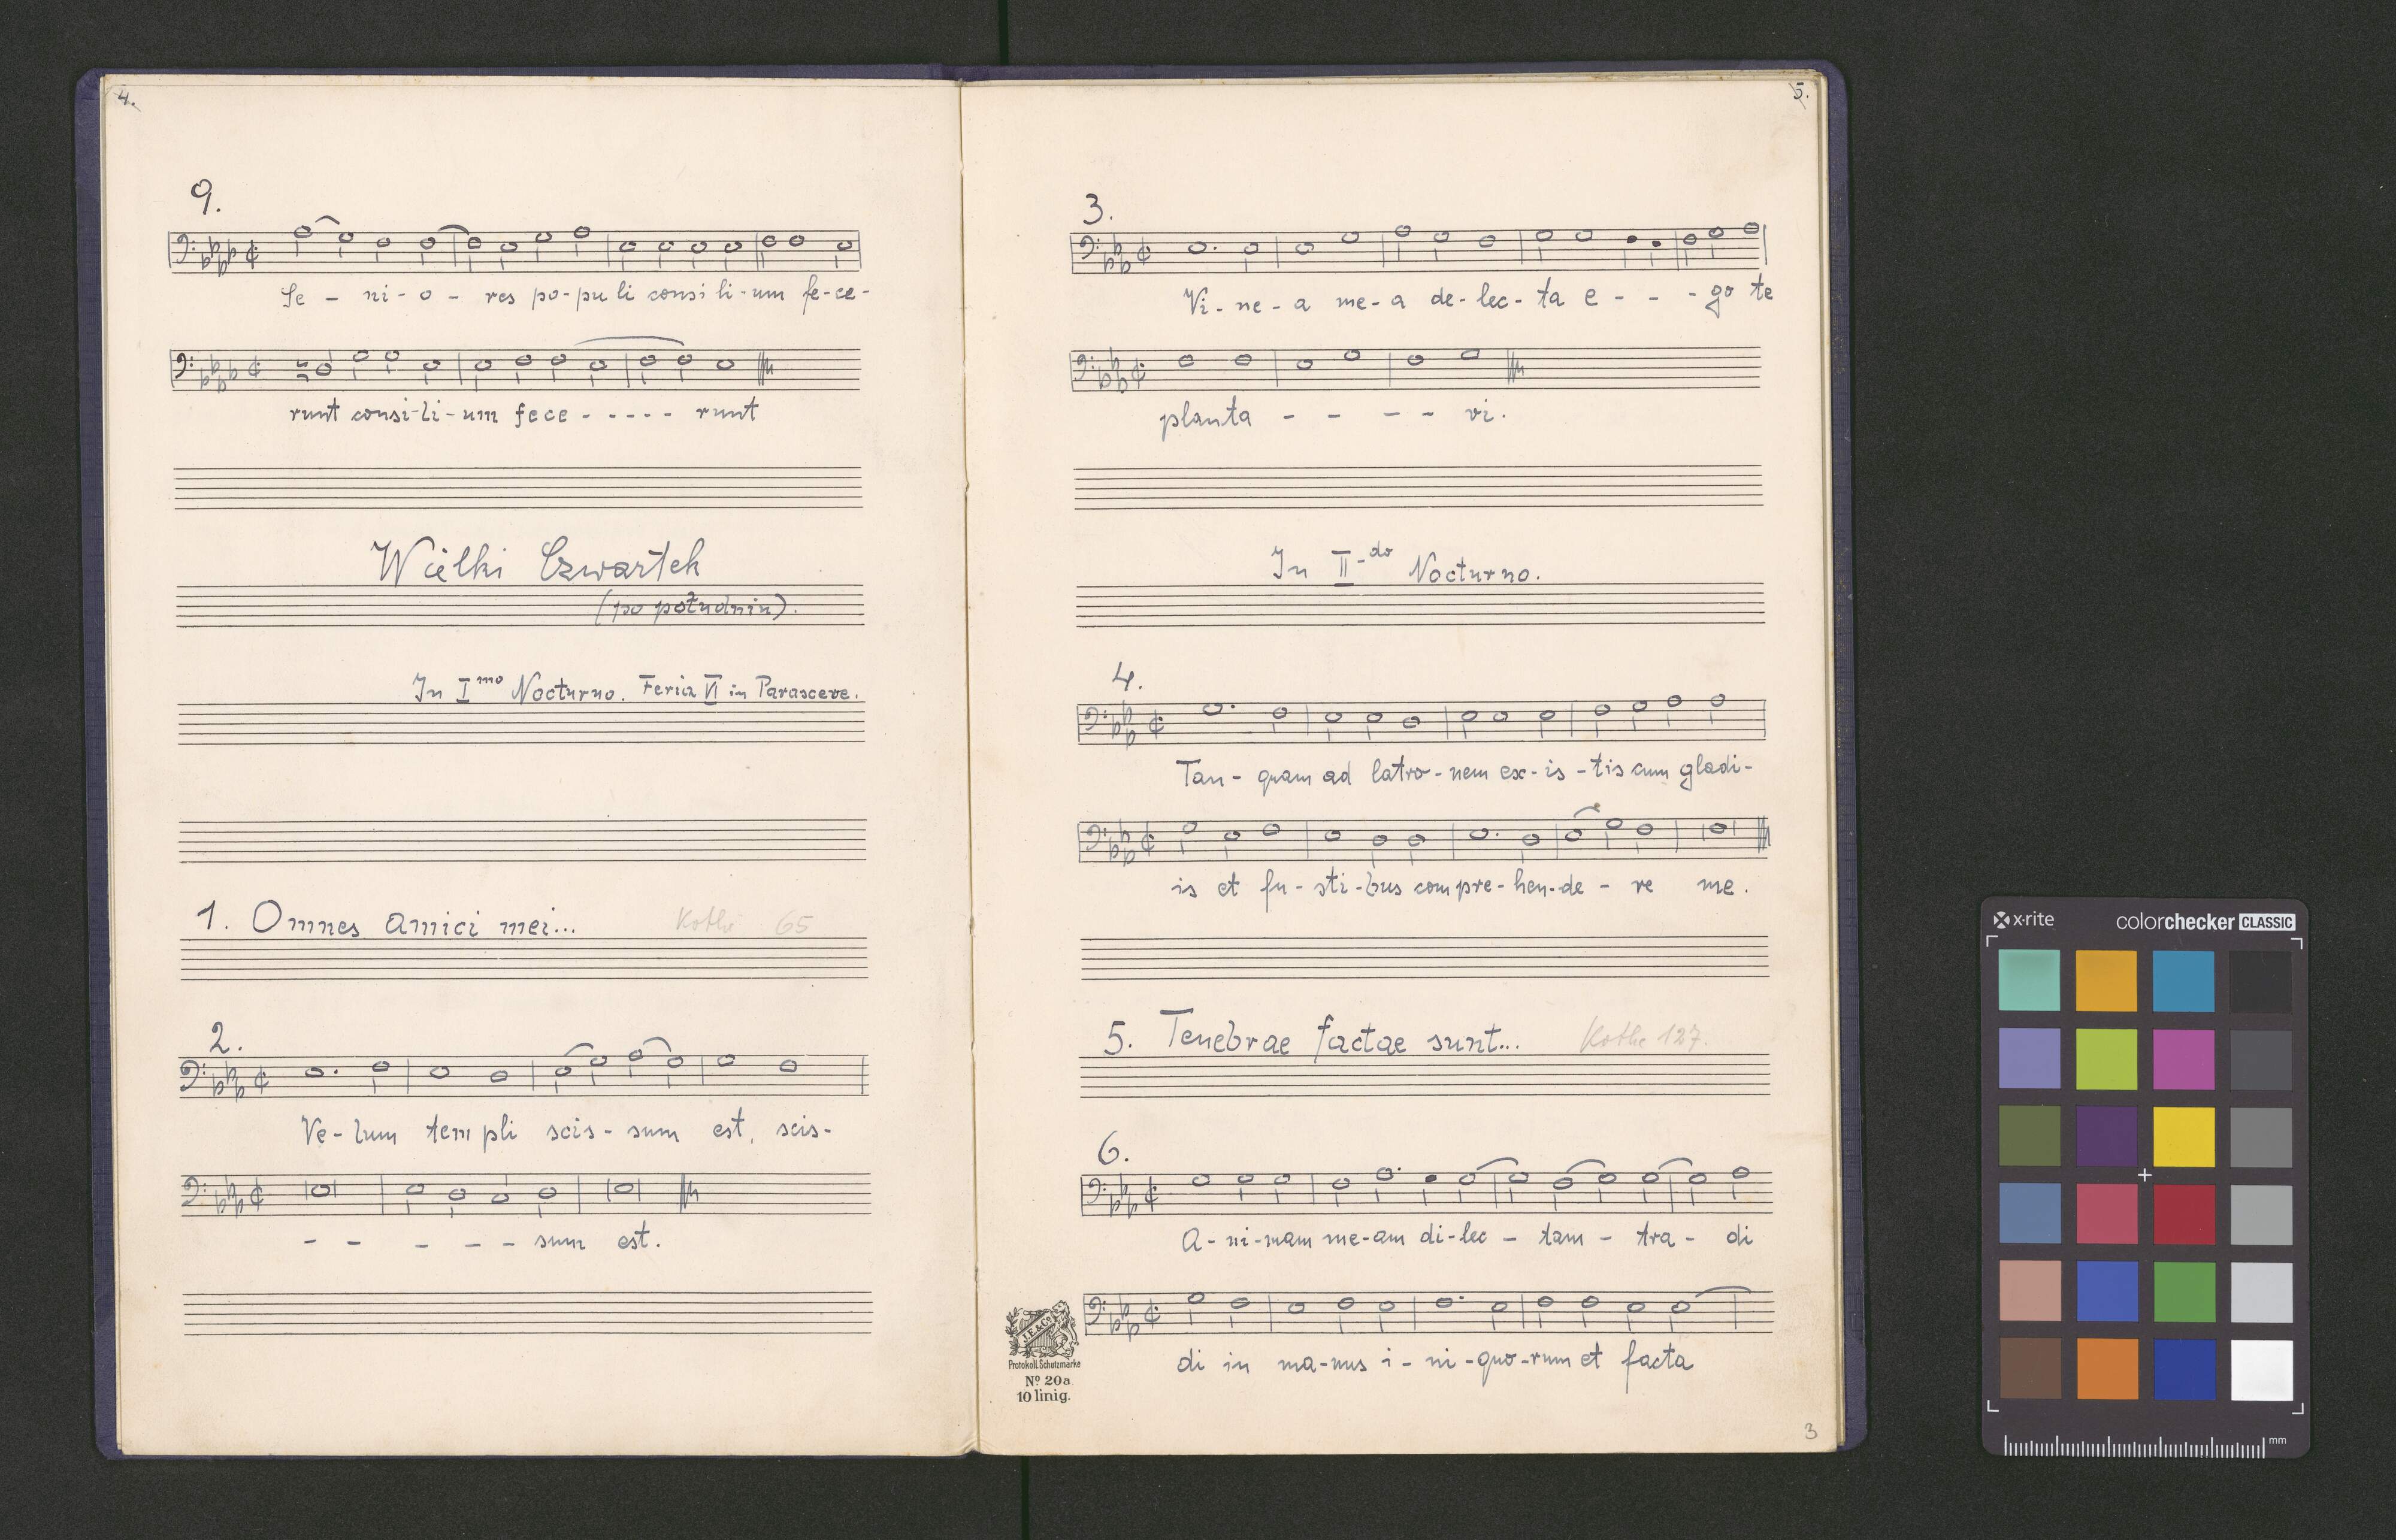 4.
9.
Se - ni - o - res po-pu li consi li-um fe-ce-
runt consi-li-um fece - - - - - runt
Wielki Czwartek
(po południu).
In I mo Nocturno. Feria VI in Parasceve.
1. Omnes amici mei... Kothe 65
2.
Ve-lum tem pli scis-sum est, scis-
- - - - - sum est.
5.
3.
Vi-ne-a me-a de-lec-ta e - - - go te
planta - - - - vi.
In II-do Nocturno.
4.
Tan-quam ad latro-nem ex-is-tis cum gladi-
is et fu-sti-bus com pre-hen-de-re me.
5. Tenebrae factae sunt... Kothe 127.
6.
A-ni-mam me-am di-lec - tam - tra - di
di in ma-nus i-ni-quo-rum et facta
J.E.&Co.
Protokoll. Schutzmarke
No. 20a
10 linig.
3
x-rite
colorchecker CLASSIC
mm